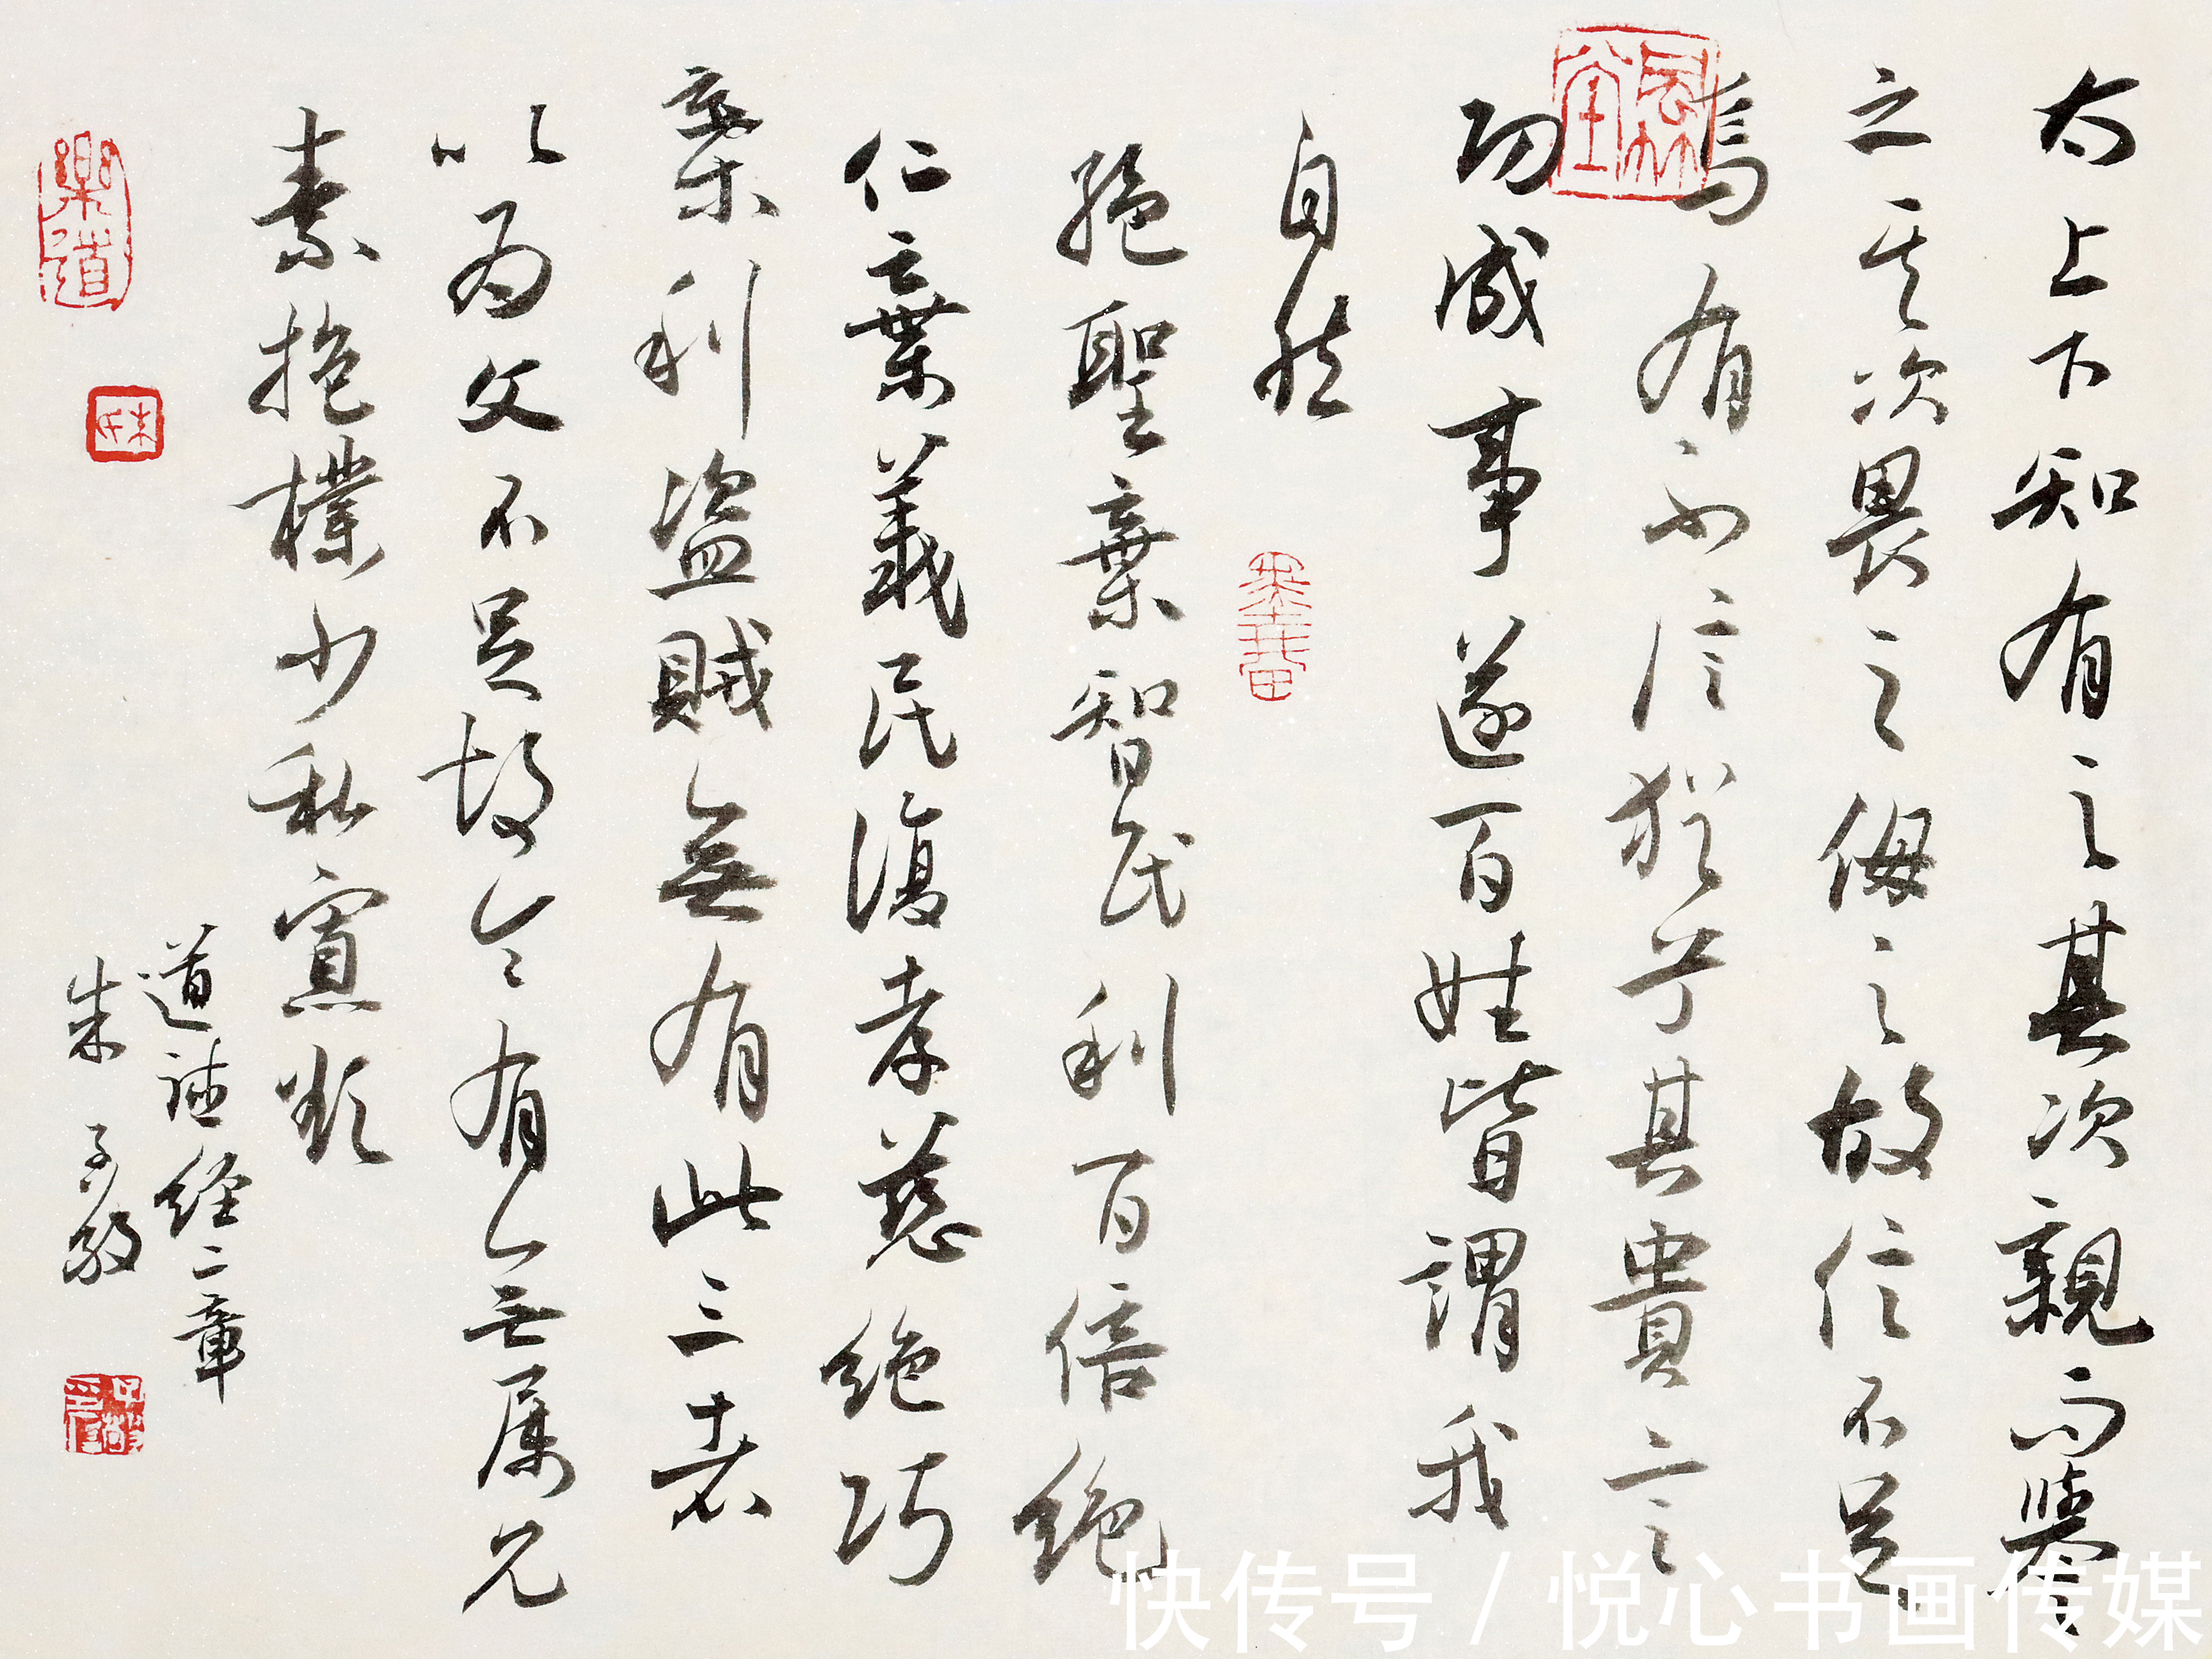 太上下知有之其次親而譽
之其次畏之侮之故信不足
焉有不信猶兮其貴言
功成事遂百姓皆謂我
自然
絕聖棄智民利百倍絕
仁棄義民復孝慈絕巧
棄利盜賊無有此三者
以為文不足故令有所屬見
素抱樸少私寡欲
道德经二章
朱子敬
樂道
朱
快传号/悦心书画传媒